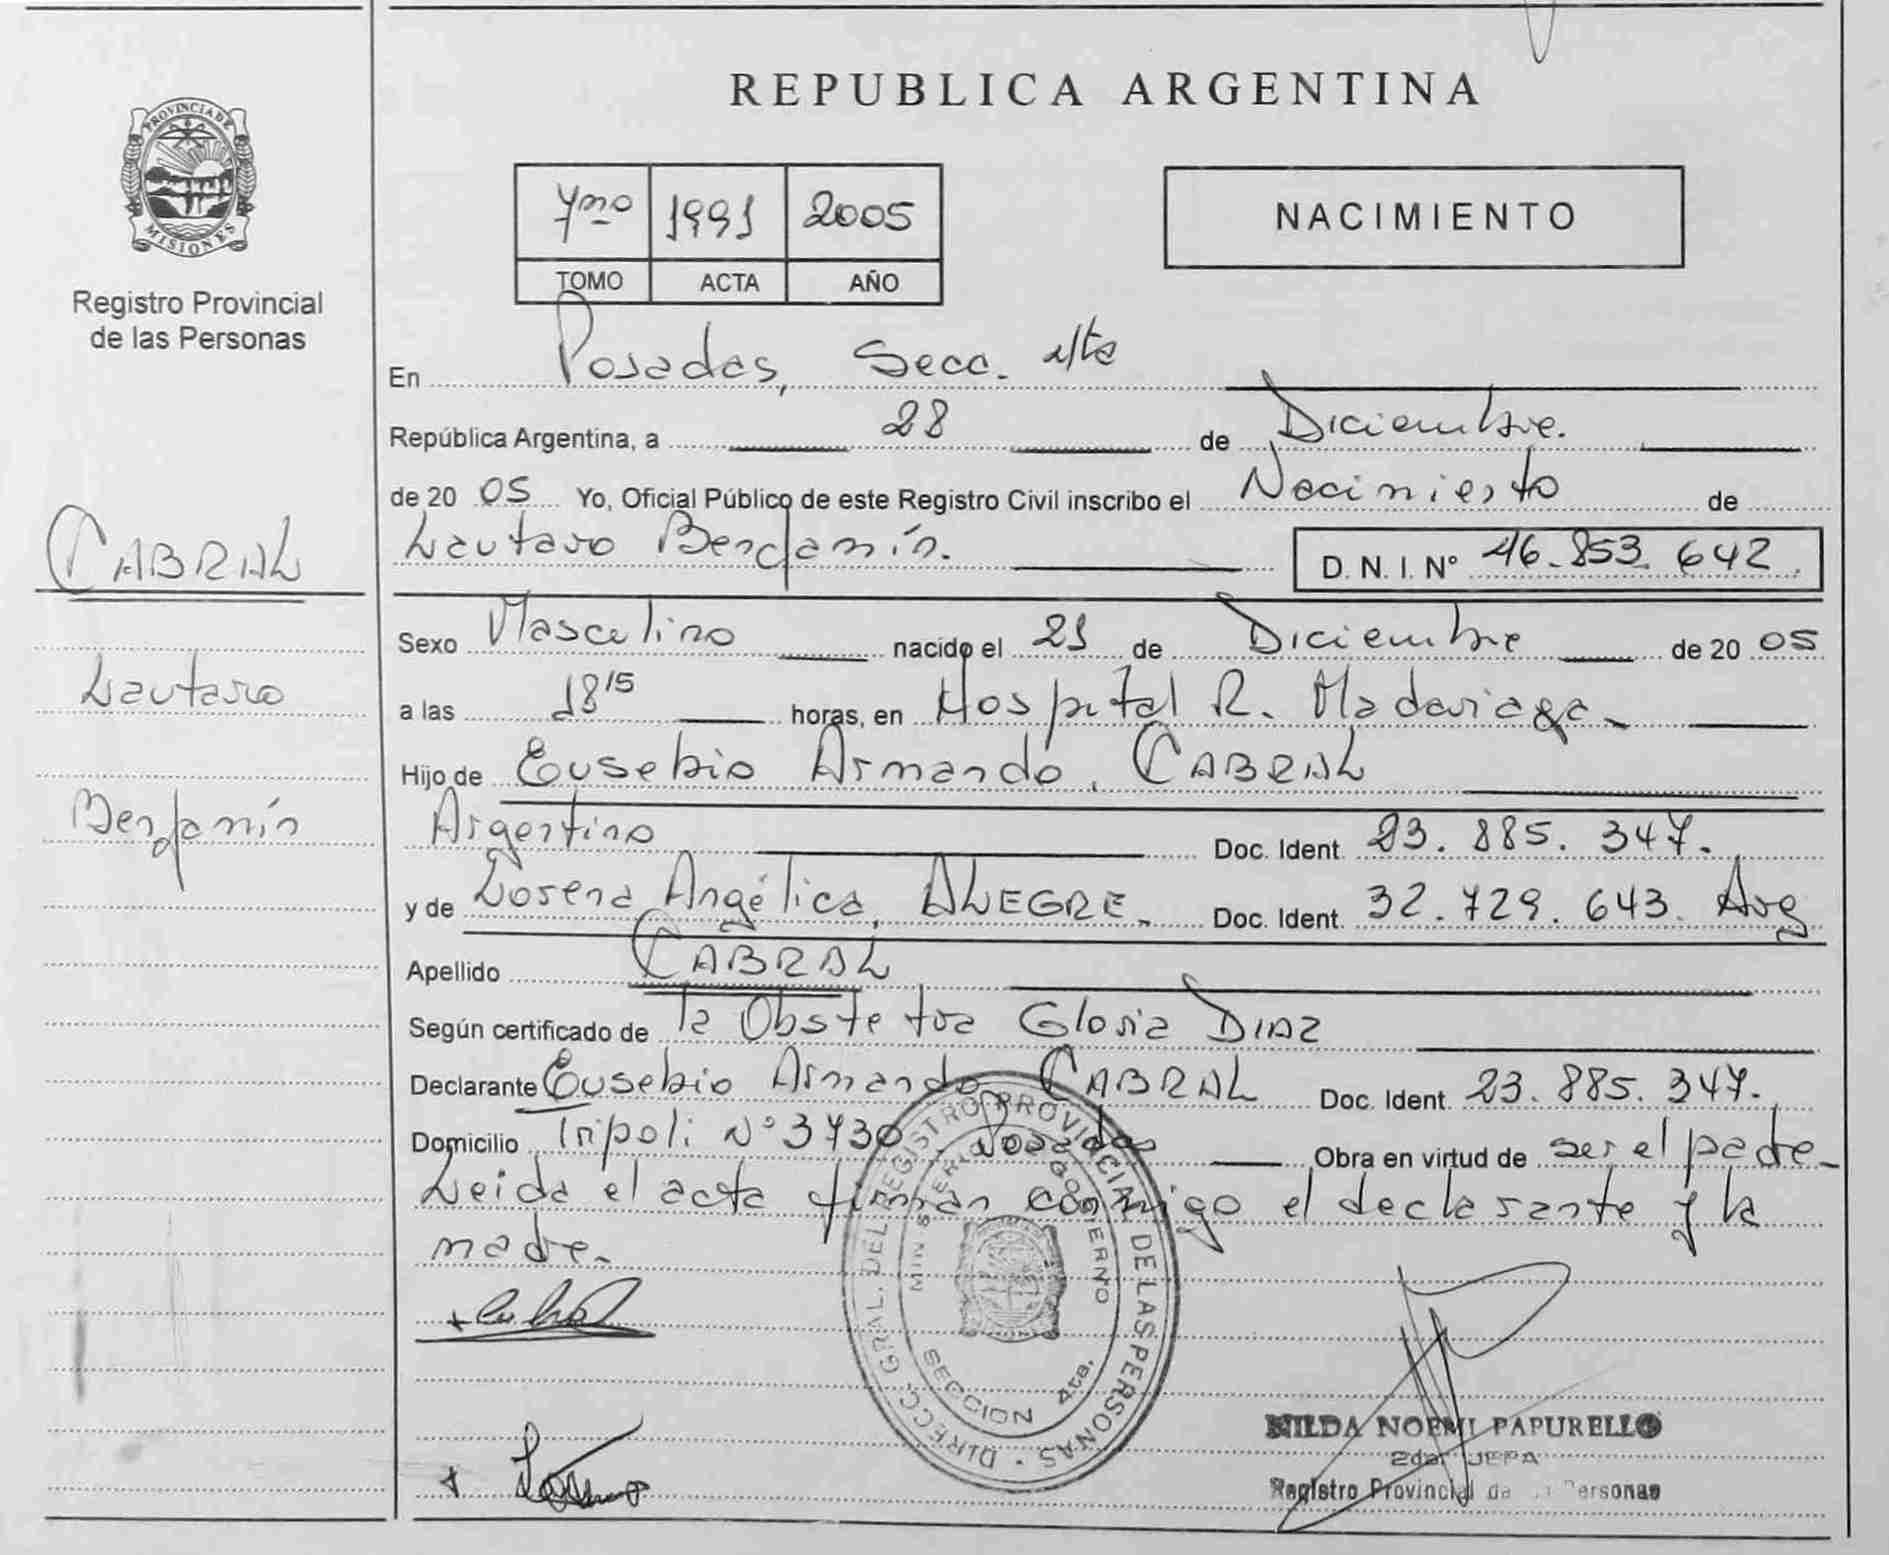 PROVINCIA DE
MISIONES
Registro Provincial
de las Personas
CABRAL
Lautaro
Benjamín
REPUBLICA ARGENTINA
7mo 1991 2005
TOMO ACTA AÑO
NACIMIENTO
En Posadas, Secc. 4ta
República Argentina, a 28 de Diciembre.
de 20 05 Yo, Oficial Público de este Registro Civil inscribo el Nacimiento de
Lautaro Benjamín. D. N. I. N° 46.853.642.
Sexo Masculino nacido el 21 de Diciembre de 20 05
a las 18 15 horas, en Hospital R. Madariaga.
Hijo de Eusebio Armando, CABRAL
Argentino Doc. Ident. 23.885.347.
y de Lorena Angélica, ALEGRE. Doc. Ident. 32.729.643. Arg
Apellido CABRAL
Según certificado de la Obstetra Gloria DIAZ
Declarante Eusebio Armando CABRAL Doc. Ident. 23.885.347.
Domicilio Tripoli N°3730 Posadas Obra en virtud de ser el padre.
Leida el acta firman conmigo el declarante y la
madre.
DIRECC. GRAL. DEL REGISTRO PROVINCIAL DE LAS PERSONAS
MINISTERIO DE GOBIERNO
SECCION 4ta.
NILDA NOEMI PAPURELLO
2da. JEFA
Registro Provincial de las Personas